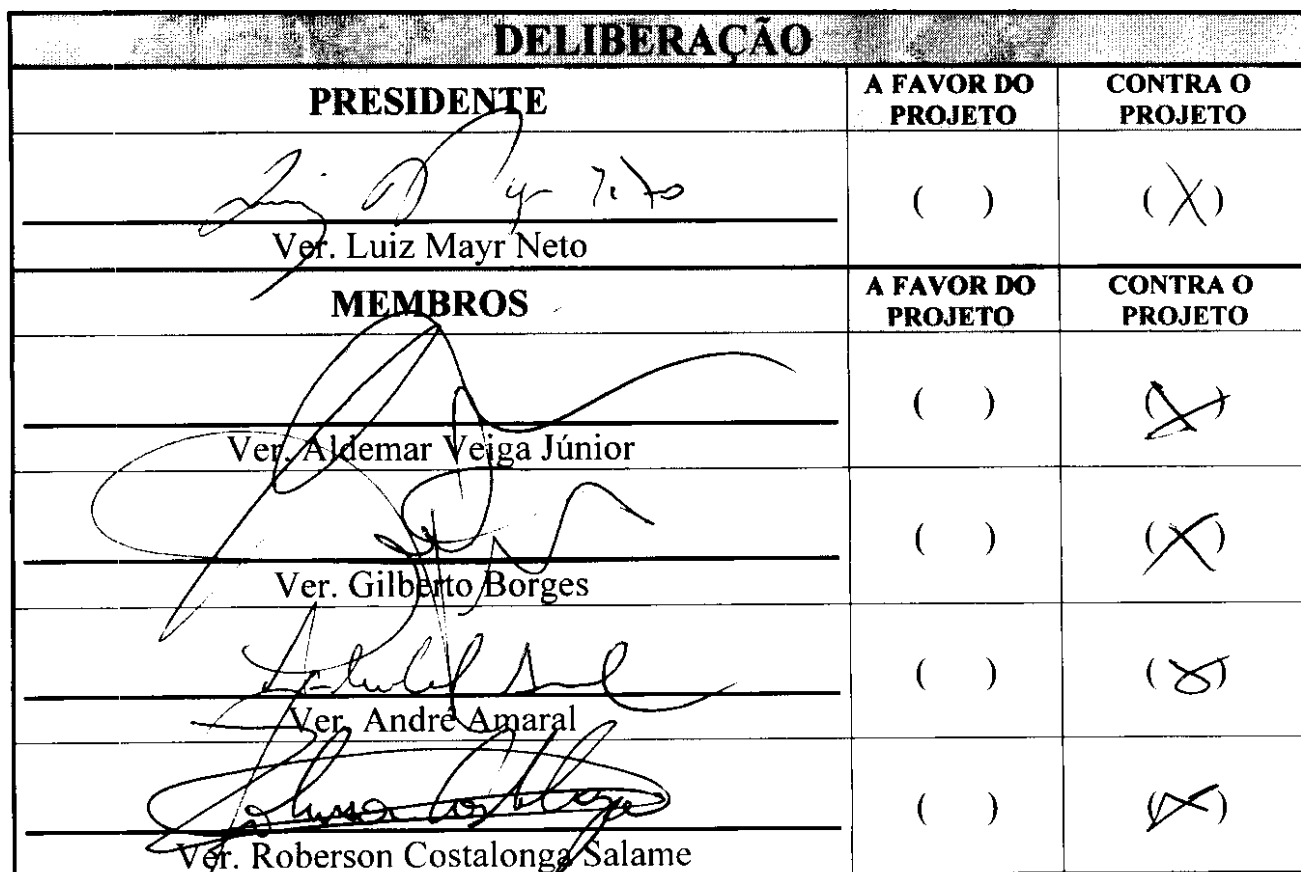 DELIBERAÇÃO
PRESIDENTE
A FAVOR DO PROJETO
CONTRA O PROJETO
( )
(X)
Ver. Luiz Mayr Neto
MEMBROS
A FAVOR DO PROJETO
CONTRA O PROJETO
( )
(X)
Ver. Aldemar Veiga Júnior
( )
(X)
Ver. Gilberto Borges
( )
(X)
Ver. André Amaral
( )
(X)
Ver. Roberson Costalonga Salame